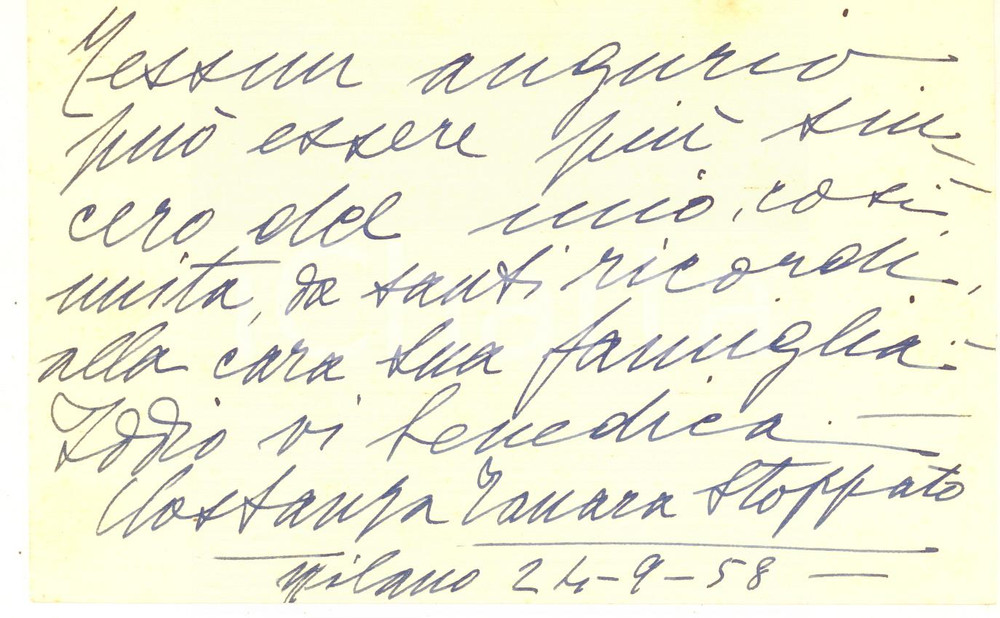 Nessun augurio
può essere più sin-
cero del mio, così
unita, da santi ricordi,
alla cara sua famiglia.-
Iddio vi benedica. —
Costanza Tanara Stoppato
Milano 24-9-58 —